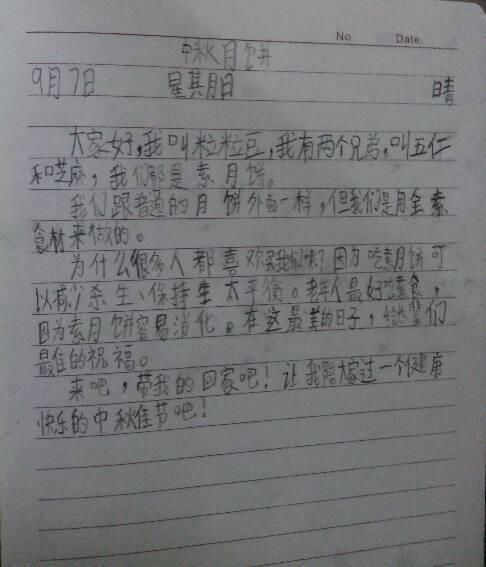 No.
Date.
中秋月饼
9月7日 星期日 晴
大家好,我叫粒粒豆,我有两个兄弟,叫五仁
和芝麻,我们都是素月饼。
我们跟普通的月饼外面一样,但我们是用全素
食材来做的。
为什么很多人都喜欢买我们呢?因为吃素月饼可
以减少杀生、保持生太平衡。老年人最好吃素食,
因为素月饼容易消化。在这最美的日子,给长辈们
最佳的祝福。
来吧,带我的回家吧!让我陪大家过一个健康
快乐的中秋佳节吧!